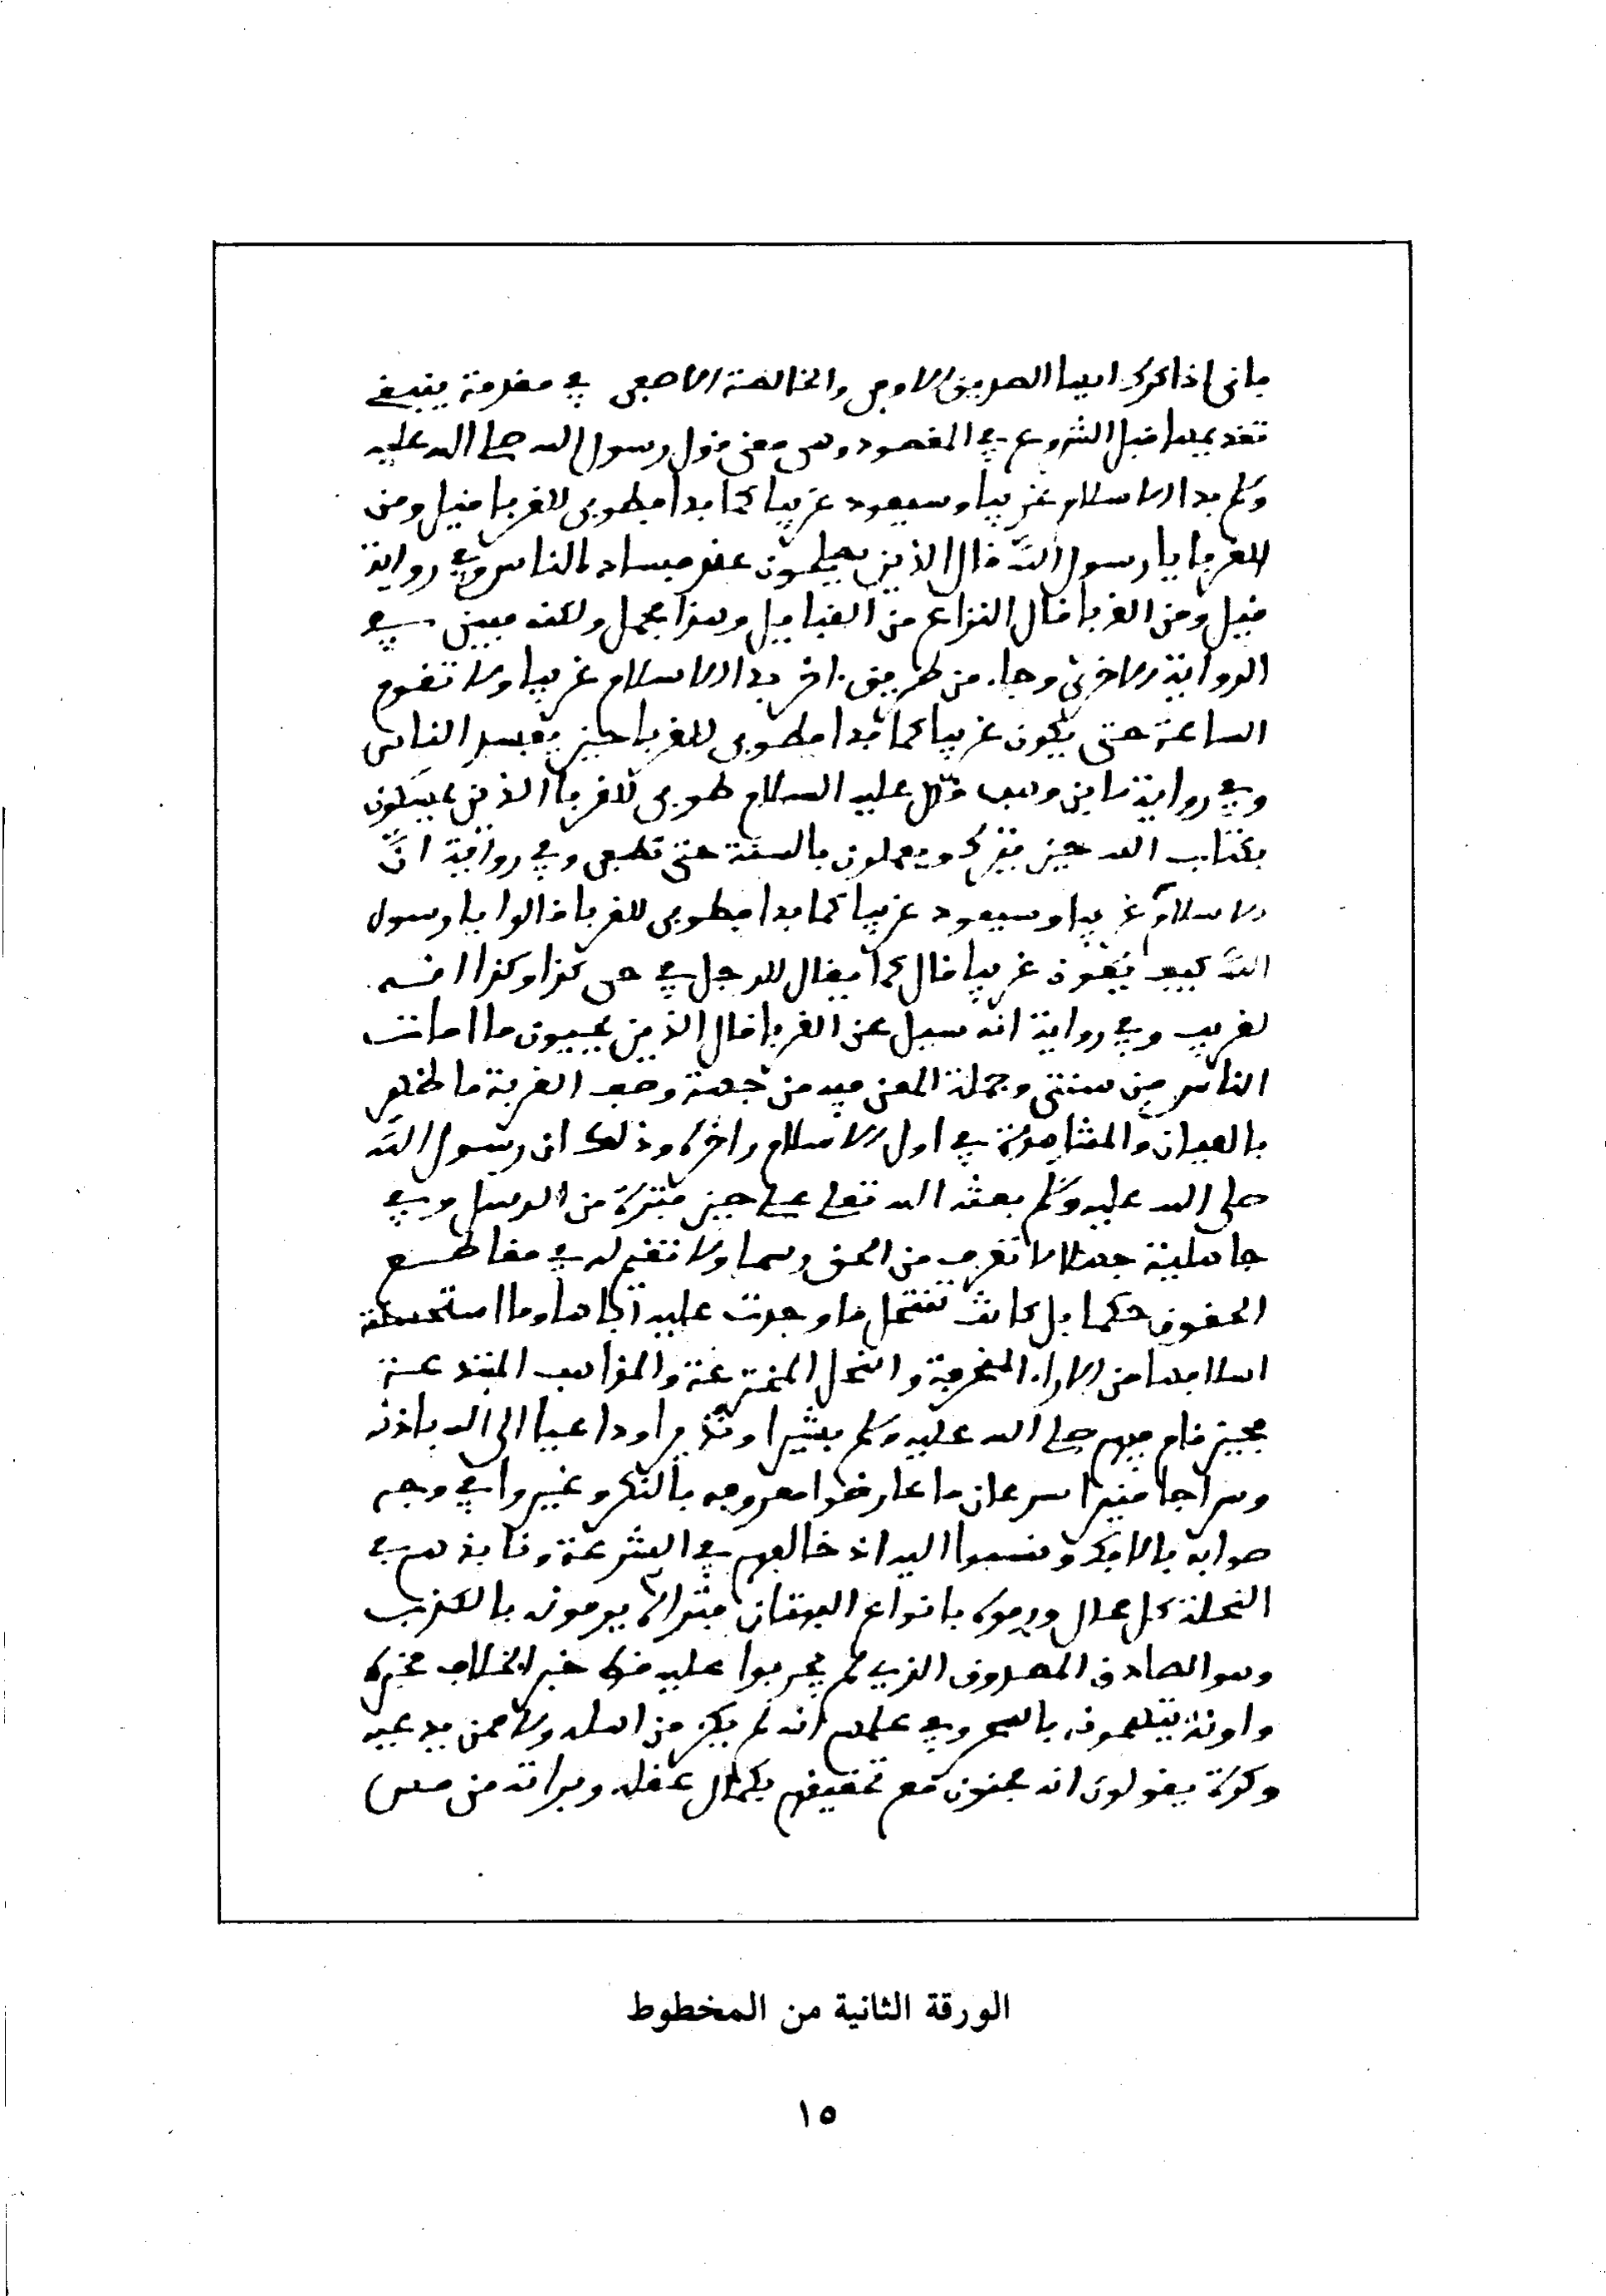 فاني اذاكرك ايها الصديق الاوفى والخالصة الاصفى في مقدمة ينبغي
تقديمها قبل الشروع في المقصود وهي معنى قول رسول الله صلى الله عليه
وسلم بدا الاسلام غريبا وسيعود غريبا كما بدا فطوبى للغربا قيل ومن
الغربا يا رسول الله قال الذين يصلحون عند فساد الناس وفي رواية
قيل ومن الغربا قال النزاع من القبايل وهذا مجمل ولكنه مبين في
الرواية الاخرى وجاء من طريق اخر بدا الاسلام غريبا ولا تقوم
الساعة حتى يكون غريبا كما بدا فطوبى للغربا حين يفسد الناس
وفي رواية لابن وهب قال عليه السلام طوبى للغربا الذين يمسكون
بكتاب الله حين يترك ويعملون بالسنة حتى تطفى وفي رواية ان
الاسلام غريبا وسيعود غريبا كما بدا فطوبى للغربا قالوا يا رسول
الله كيف يكون غريبا قال كما يقال للرجل في حي كذا وكذا انه
لغريب وفي رواية انه سيل عن الغربا قال الذين يحيون ما امات
الناس من سنتي وجملة المعنى فيه من جهة وصف الغربة ما ظهر
بالعيان والمشاهدة في اول الاسلام واخره وذلك ان رسول الله
صلى الله عليه وسلم بعثه الله تعلى على حين فترة من الرسل وفي
جاهلية جهلا لا تعرف من الحق رسما ولا تقيم له في مقاطع
الحقوق حكما بل كانت تنتحل ما وجدت عليه اباها وما استحسنته
اسلافها من الاراء المنحرفة والنحل المخترعة والمذاهب المبتدعة
فحين قام فيهم صلى الله عليه وسلم بشيرا ونذيرا وداعيا الى الله باذنه
وسراجا منيرا سرعان ما عارضوا معروفه بالنكر وغيروا في وجه
صوابه بالافك ونسبوا اليه اذ خالفهم في الشرعة ونابذهم في
النحلة كل محال ورموه بانواع البهتان فتراه يرمونه بالكذب
وهو الصادق المصدوق الذي لم يجربوا عليه قط خبرا بخلاف مخبره
واونة يتهمونه بالسحر وفي علمهم انه لم يكن من اهله ولا ممن يدعيه
وكرة يقولون انه مجنون مع تحقيقهم بكمال عقله وبراته من مس
الورقة الثانية من المخطوط
١٥